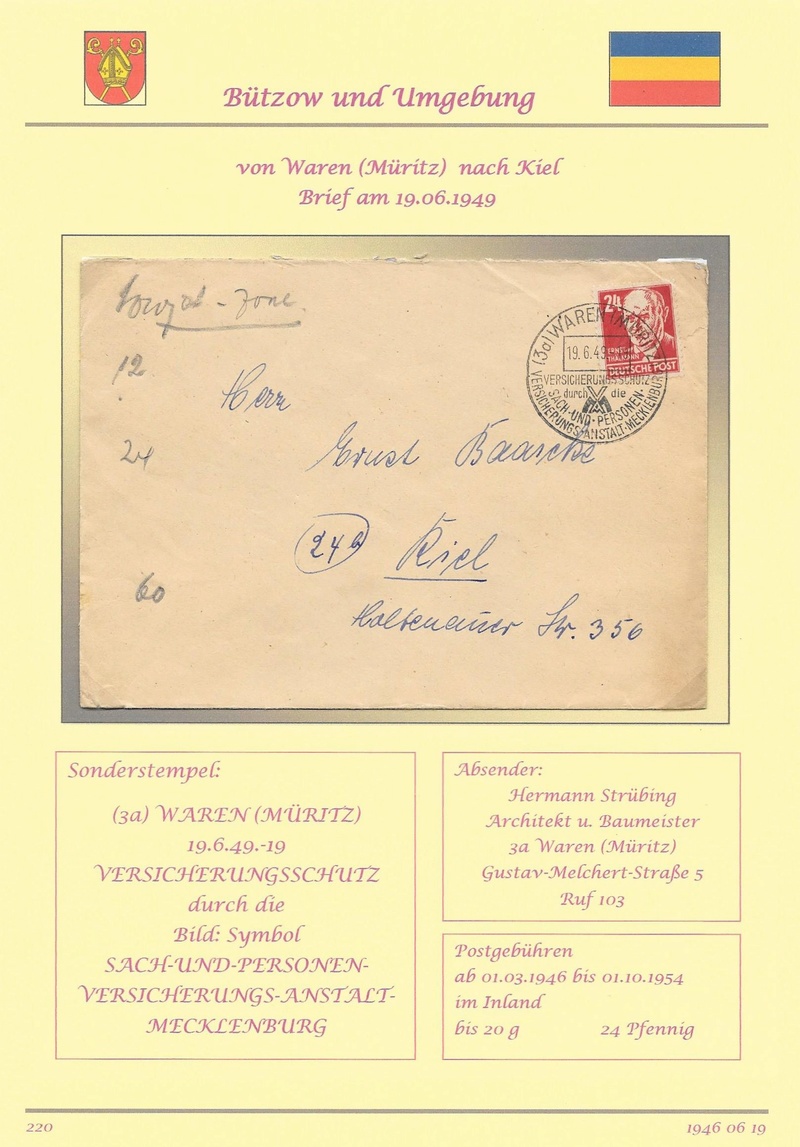 Bützow und Umgebung
von Waren (Müritz) nach Kiel
Brief am 19.06.1949
Sowjet - Zone
12
24
60
Herr
Ernst Baascke
24b Kiel
Holtenauer Str. 356
24
ERNST THÄLMANN
DEUTSCHE POST
(3a) WAREN (MÜRITZ)
19.6.49
VERSICHERUNGSSCHUTZ
durch die
SACH-UND-PERSONEN-
VERSICHERUNGS-ANSTALT-MECKLENBURG
Sonderstempel:
(3a) WAREN (MÜRITZ)
19.6.49.-19
VERSICHERUNGSSCHUTZ
durch die
Bild: Symbol
SACH-UND-PERSONEN-
VERSICHERUNGS-ANSTALT-
MECKLENBURG
Absender:
Hermann Strübing
Architekt u. Baumeister
3a Waren (Müritz)
Gustav-Melchert-Straße 5
Ruf 103
Postgebühren
ab 01.03.1946 bis 01.10.1954
im Inland
bis 20 g 24 Pfennig
220
1946 06 19